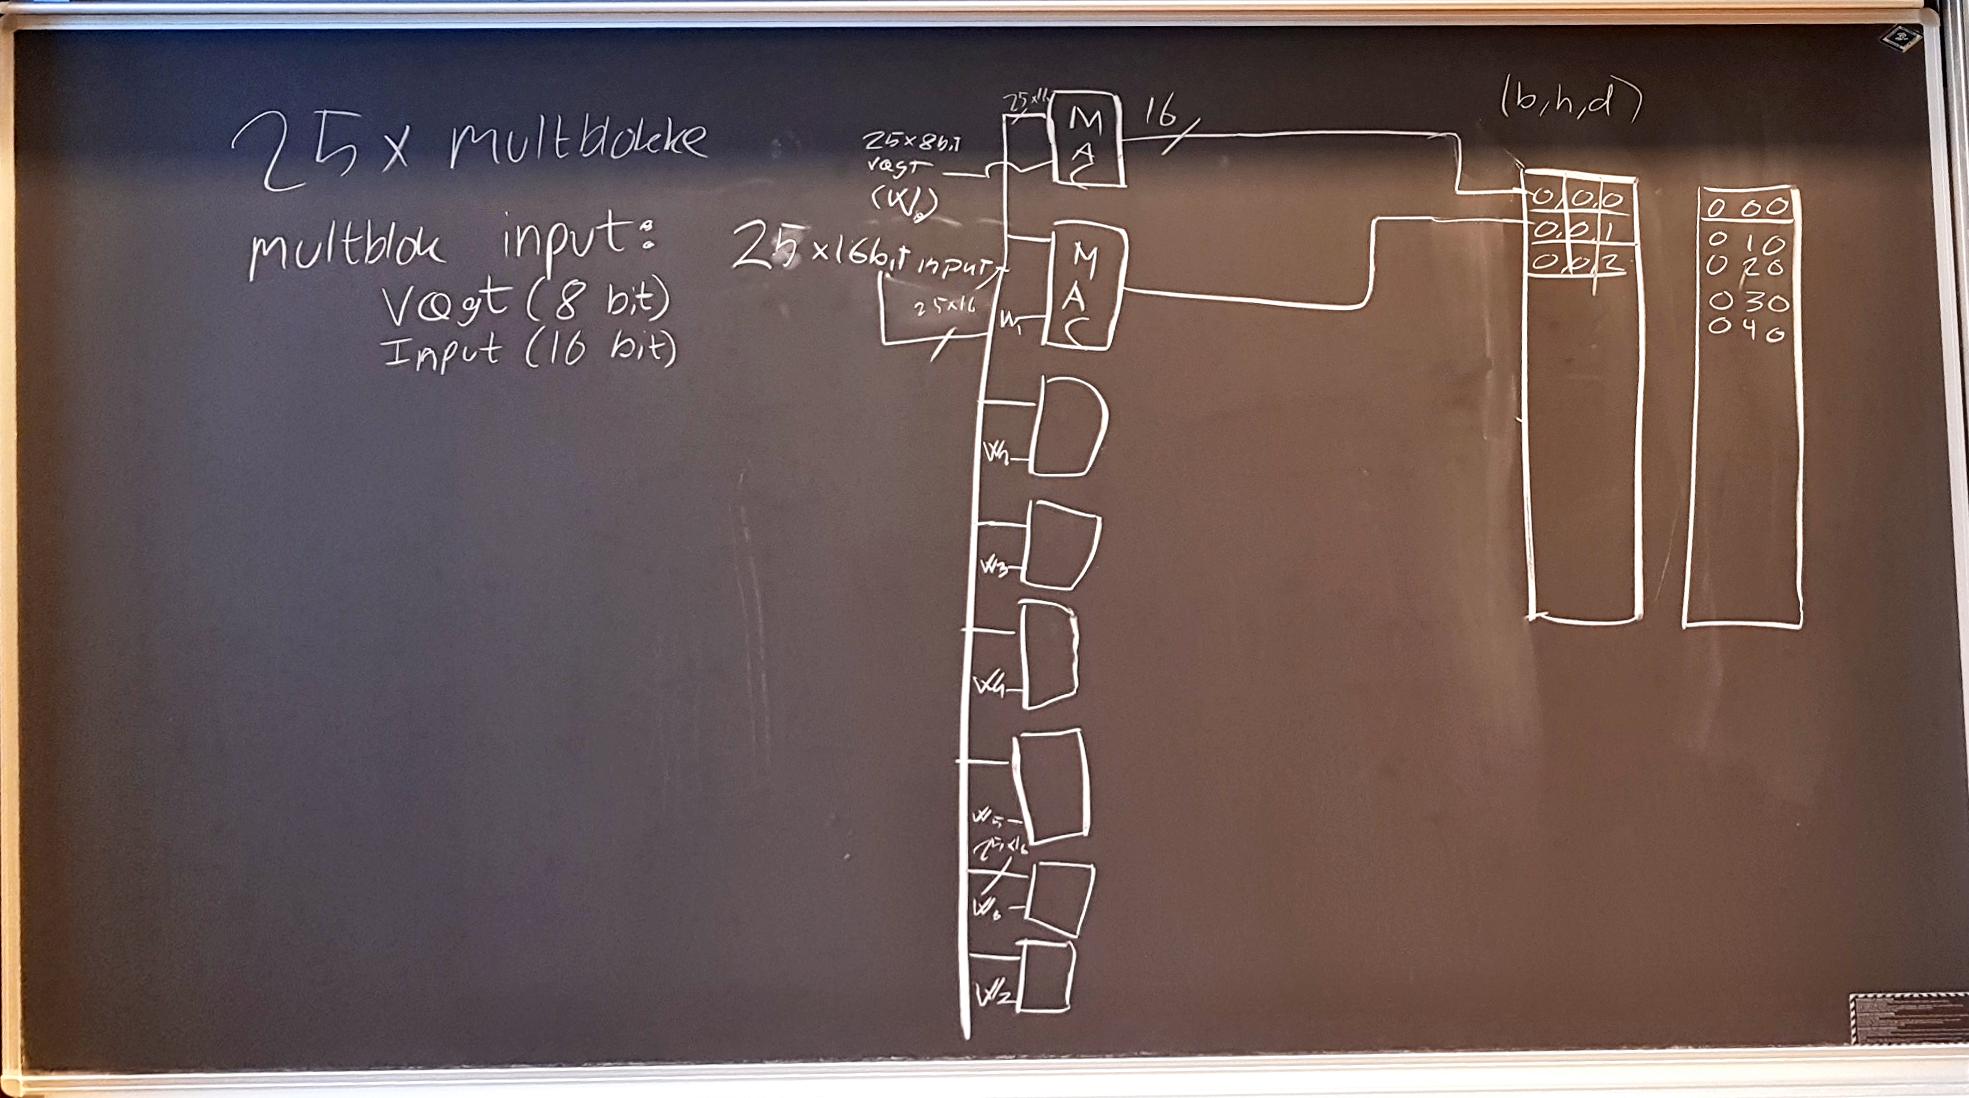 25 x multblokke
multblok input:
Vægt (8 bit)
Input (16 bit)
25x8bit
vægt
(W0)
25x16bit input
25x16
25x16
MAC
16
MAC
W1
W3
W4
W5
25x16
W6
(b,h,d)
0,0,0
0,0,1
0,0,2
0 0 0
0 1 0
0 2 0
0 3 0
0 4 0